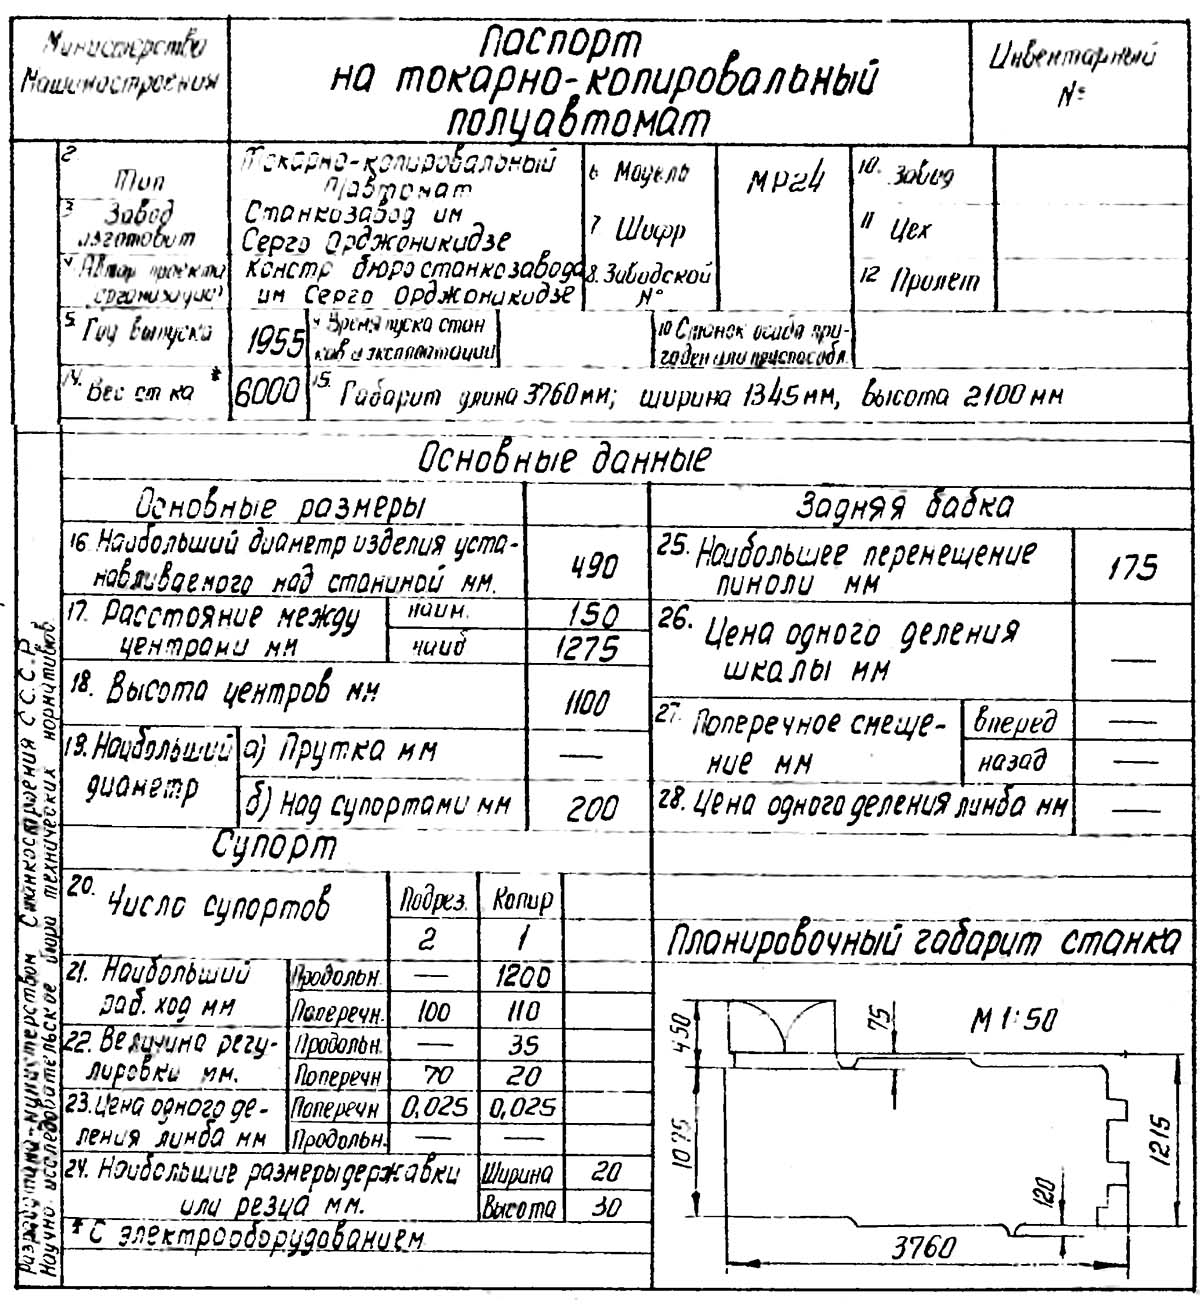 Министерство
Машиностроения
Паспорт
на токарно-копировальный
полуавтомат
Инвентарный
№
2.
Тип
Токарно-копировальный
п/автомат
6 Модель
МР24
10. Завод
3 Завод
изготовит
Станкозавод им
Серго Орджоникидзе
7 Шифр
11 Цех
4 Автор проекта
(организация)
Констр бюро станкозавода
им Серго Орджоникидзе
8. Заводской
№
12 Пролет
5. Год выпуска
1955
Время пуска стан
ков в эксплоатации
10 Станок особо при-
годен или приспособл.
14. Вес ст ка *
6000
15. Габарит длина 3760 мм; ширина 1345 мм, высота 2100 мм
Основные данные
Основные размеры
16. Наибольший диаметр изделия уста-
навливаемого над станиной мм.
490
17. Расстояние между
центрами мм
наим.
150
наиб
1275
18. Высота центров мм
1100
19. Наибольший
диаметр
а) Прутка мм
—
б) Над супортами мм
200
Супорт
20. Число супортов
Подрез. Копир
2 1
21. Наибольший
раб. ход мм
Продольн. — 1200
Поперечн. 100 110
22. Величина регу-
лировки мм.
Продольн. — 35
Поперечн 70 20
23. Цена одного де-
ления лимба мм
Поперечн 0,025 0,025
Продольн. — —
24. Наибольшие размеры державки
или резца мм.
Ширина 20
Высота 30
* С электрооборудованием
Задняя бабка
25. Наибольшее перемещение
пиноли мм
175
26. Цена одного деления
шкалы мм
—
27. Поперечное смеще-
ние мм
вперед —
назад —
28. Цена одного деления лимба мм —
Планировочный габарит станка
М 1:50
450
75
1075
1215
120
3760
Разработана министерством Станкостроения С.С.С.Р.
Научно исследовательское бюро технических нормативов.